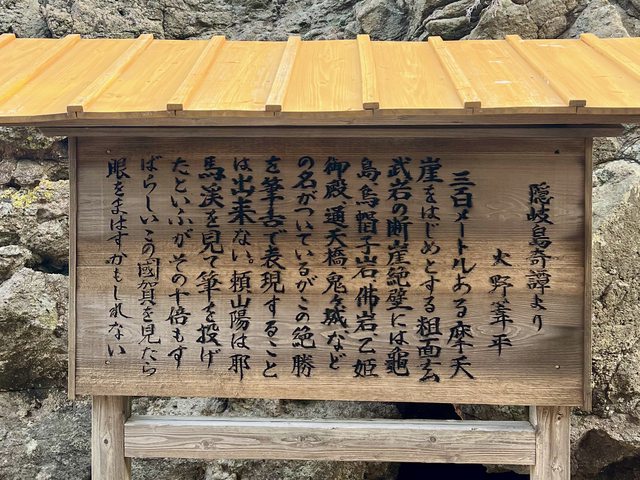 隠岐島奇譚より
火野葦平
三百メートルある摩天
崖をはじめとする粗面玄
武岩の断崖絶壁には亀
島烏帽子岩佛岩乙姫
御殿、通天橋鬼ヶ城など
の名がついているがこの絶勝
を筆舌で表現すること
は出来ない。頼山陽は耶
馬溪を見て筆を投げ
たといふがその十倍もす
ばらしいこの國賀を見たら
眼をまはすかもしれない